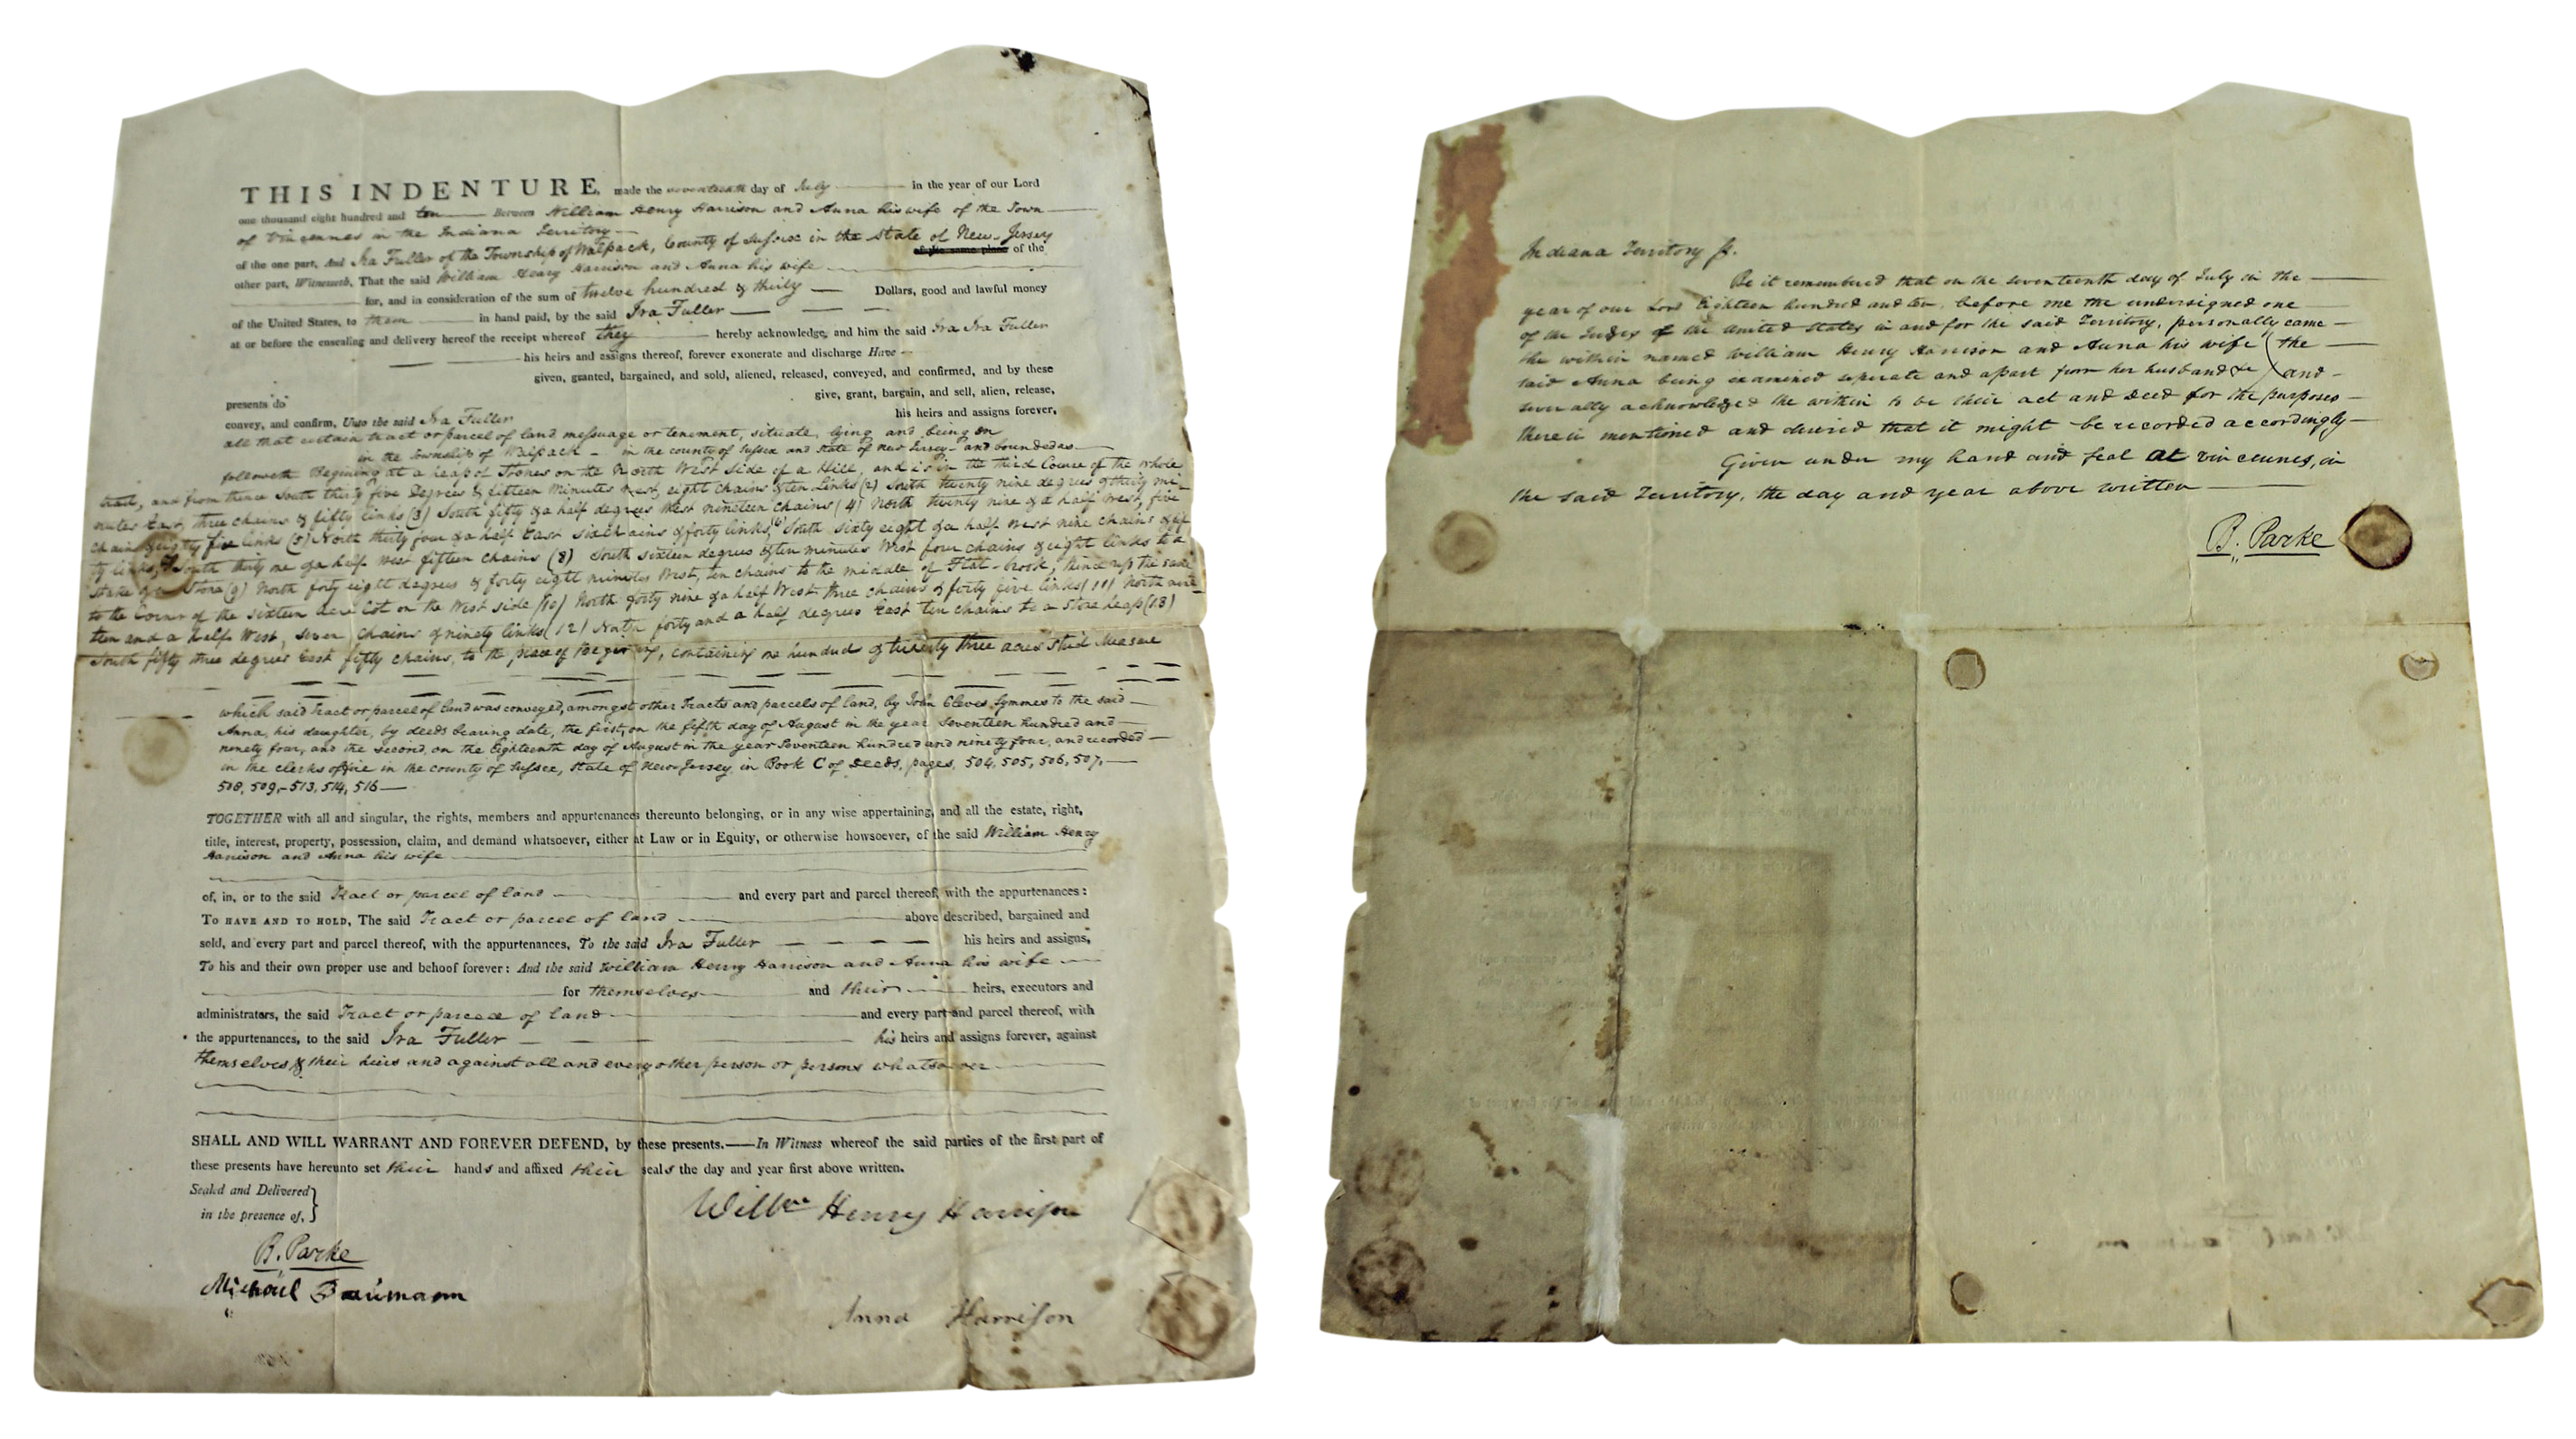 THIS INDENTURE, made the seventeenth day of July in the year of our Lord
one thousand eight hundred and ten Between William Henry Harrison and Anna his wife of the Town
of Vincennes in the Indiana Territory
of the one part, And Ira Fuller of the Township of Walpack, County of Sussex in the State of New-Jersey
of the same place of the
other part, Witnesseth, That the said William Henry Harrison and Anna his wife
for, and in consideration of the sum of twelve hundred & thirty Dollars, good and lawful money
of the United States, to them in hand paid, by the said Ira Fuller
at or before the ensealing and delivery hereof the receipt whereof they hereby acknowledge, and him the said Ira Ira Fuller
his heirs and assigns thereof, forever exonerate and discharge Have
given, granted, bargained, and sold, aliened, released, conveyed, and confirmed, and by these
presents do give, grant, bargain, and sell, alien, release,
convey, and confirm, Unto the said Ira Fuller his heirs and assigns forever,
all that certain tract or parcel of land messuage or tenement, situate, lying and being in
in the Township of Walpack - in the county of Sussex and State of New Jersey - and bounded as
followeth Begining at a heap of Stones on the North West side of a Hill, and is in the third Course of the whole
tract, and from thence South thirty five Degrees & fifteen Minutes West, eight chains & ten Links (2) South twenty nine degrees & thirty mi-
nutes East, three chains & fifty links (3) South fifty & a half degrees West nineteen chains (4) North twenty nine & a half West, five
chains & eighty five links (5) North thirty four & a half East six chains & forty links (6) South sixty eight & a half West nine chains & fif
ty links, (7) South thirty one & a half West fifteen chains (8) South sixteen degrees & ten minutes West four chains & eight links to a
Stake & Stone (9) North forty eight degrees & forty eight minutes West, ten chains to the middle of Flat-brook, thence up the same
to the Corner of the sixteen Acre Lot on the West side (10) North forty nine & a half West three chains & forty five links (11) North nine-
teen and a half West, seven chains & ninety links (12) North forty and a half degrees East ten chains to a Stone heap (13)
South fifty three degrees East fifty chains, to the place of Begining, containing one hundred & twenty three acres Strict Measure
which said Tract or parcel of land was conveyed, amongst other Tracts and parcels of land, by John Cleves Symmes to the said
Anna, his daughter, by deeds bearing date, the first, on the fifth day of August in the year Seventeen hundred and
ninety four, and the second, on the Eighteenth day of August in the year Seventeen hundred and ninety four, and recorded
in the clerks office in the county of Sussex, State of New Jersey, in Book C of Deeds, pages, 504, 505, 506, 507,
508, 509, - 513, 514, 516
TOGETHER with all and singular, the rights, members and appurtenances thereunto belonging, or in any wise appertaining, and all the estate, right,
title, interest, property, possession, claim, and demand whatsoever, either at Law or in Equity, or otherwise howsoever, of the said William Henry
Harrison and Anna his wife
of, in, or to the said Tract or parcel of land and every part and parcel thereof, with the appurtenances:
TO HAVE AND TO HOLD, The said Tract or parcel of land above described, bargained and
sold, and every part and parcel thereof, with the appurtenances, To the said Ira Fuller his heirs and assigns,
To his and their own proper use and behoof forever: And the said William Henry Harrison and Anna his wife
for themselves and their heirs, executors and
administrators, the said Tract or parcel of land and every part and parcel thereof, with
the appurtenances, to the said Ira Fuller his heirs and assigns forever, against
themselves & their heirs and against all and every other person or persons whatsoever
SHALL AND WILL WARRANT AND FOREVER DEFEND, by these presents.—In Witness whereof the said parties of the first part of
these presents have hereunto set their hands and affixed their seals the day and year first above written.
Sealed and Delivered
in the presence of,
Willm Henry Harrison
B. Parke
Michaël Baümann
Anna Harrison
Indiana Territory ss.
Be it remembered that on the seventeenth day of July in the
year of our Lord Eighteen hundred and ten, before me the undersigned one
of the Judges of the United States in and for the said Territory, personally came
the within named William Henry Harrison and Anna his wife (the
said Anna being examined seperate and apart from her husband &c) and
severally acknowledged the within to be their act and deed for the purposes
therein mentioned and desired that it might be recorded accordingly
Given under my hand and seal at Vincennes, in
the said Territory, the day and year above written
B. Parke